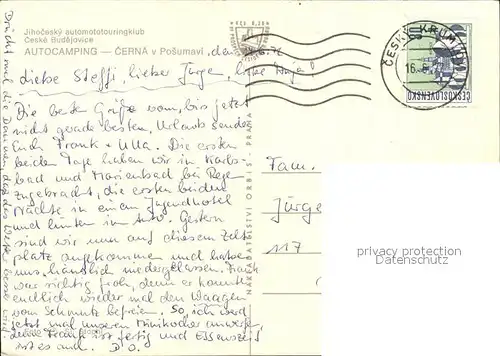 Jihočeský automototouringklub
České Budějovice
AUTOCAMPING — ČERNÁ v Pošumaví, den 76
Liebe Steffi, lieber Jürgen, liebe
Die besten Grüße vom, bis jetzt
nicht gerade besten, Urlaub senden
Euch Frank + Ulla. Die ersten
beiden Tage haben wir in Karls-
bad und Marienbad bei Regen
zugebracht, die ersten beiden
Nächte in einem Jugendhotel
und hinten im Auto. Gestern
sind wir nun auf diesem Zelt-
platz angekommen und haben
uns häuslich niedergelassen. Frank
war richtig froh, denn er konnte
endlich wieder mal den Wagen
vom Schmutz befreien. So, ich werd
jetzt mal unseren Minikocher anwerfen,
denn Frank ist fertig und Essenszeit
ist es auch.
Drückt mal die Daumen, daß das Wetter besser wird
NAKLADATELSTVÍ ORBIS · PRAHA
ČESKÝ KRUMLOV
16.
ČESKOSLOVENSKO
Fam.
Jürge
117
privacy protection
Datenschutz